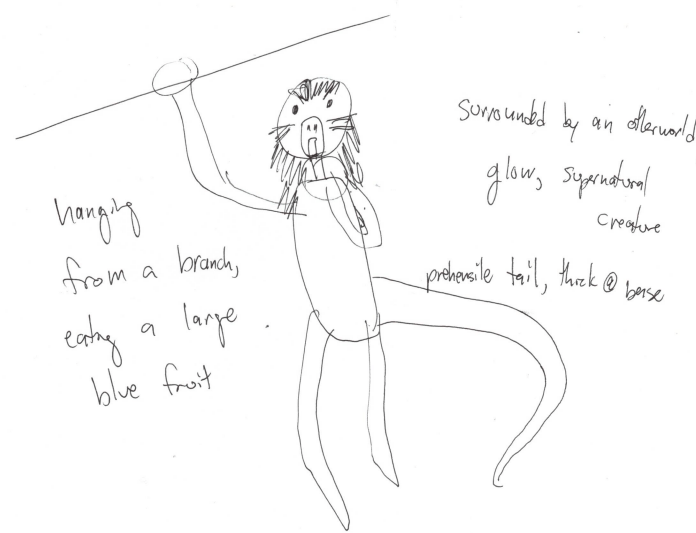 hanging
from a branch,
eating a large
blue fruit
surrounded by an otherworld
glow, supernatural
creature
prehensile tail, thick @ base